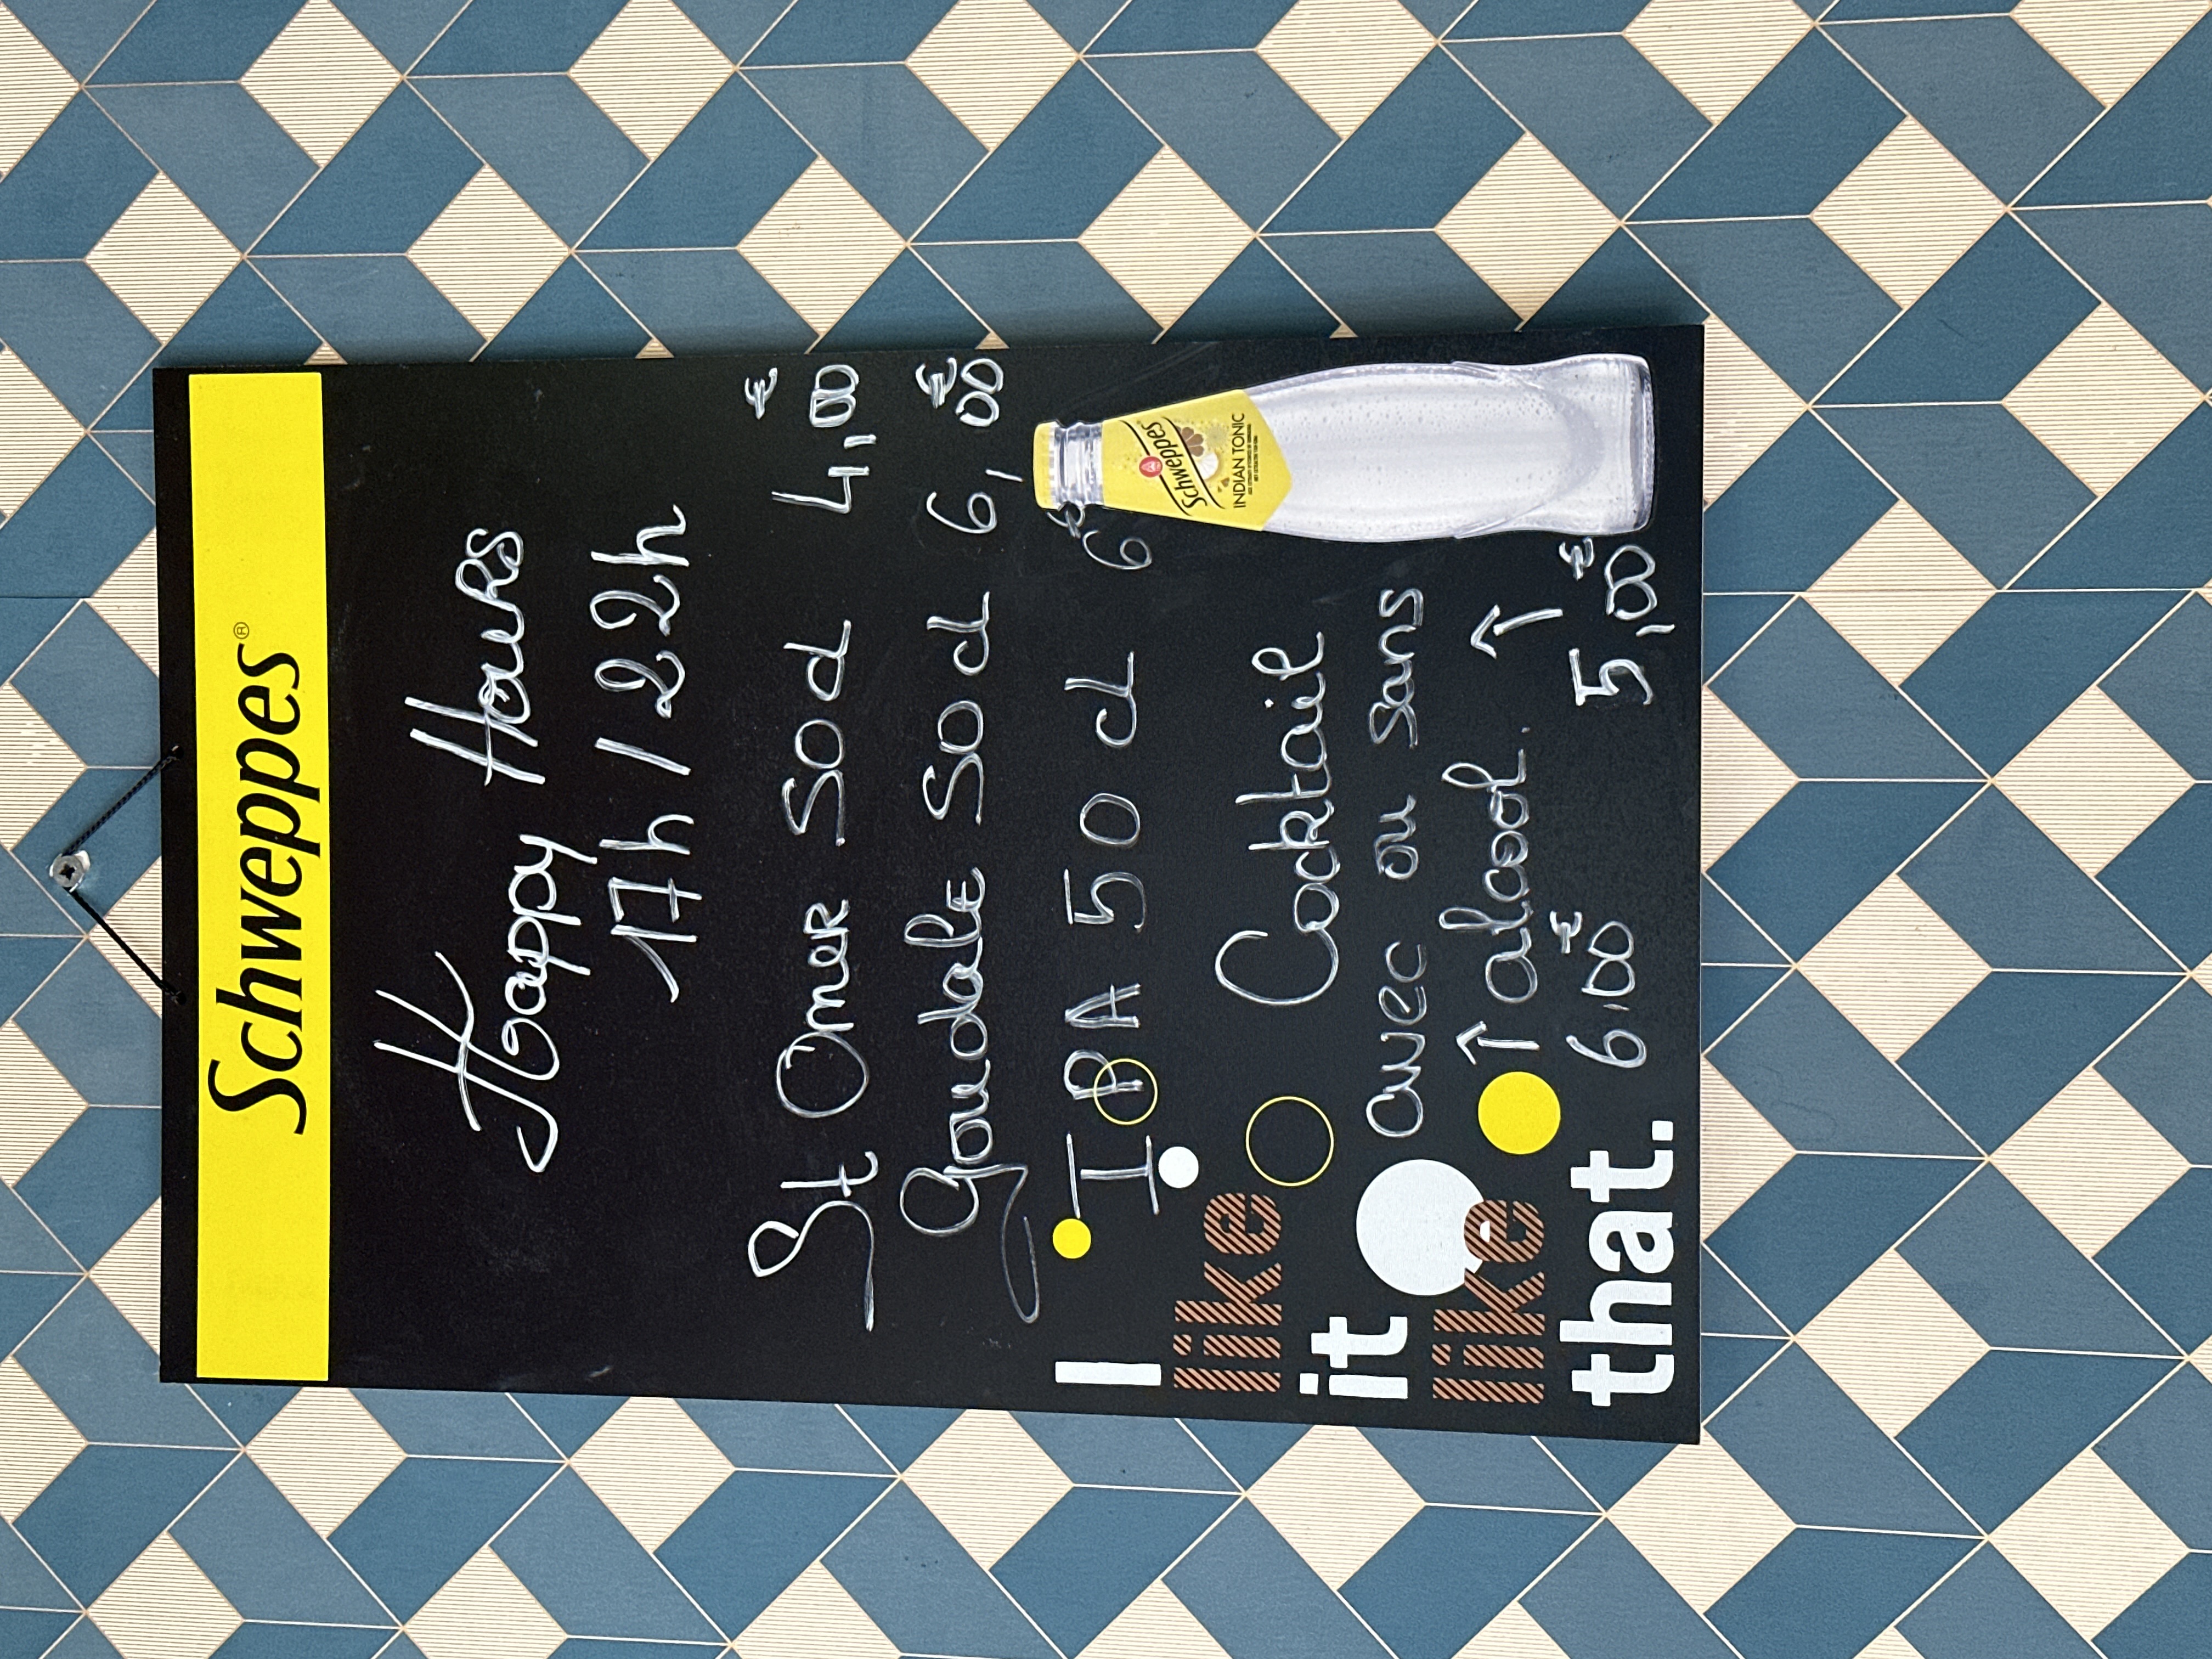 Schweppes®
Happy Hours
17h / 22h
St Omer 50 cl 4,00€
Goudale 50 cl 6,00€
IPA 50 cl 6€
Cocktail
avec ou sans
↑ alcool. ↑
6,00€ 5,00€
I
like
it
like
that.
Schweppes
INDIAN TONIC